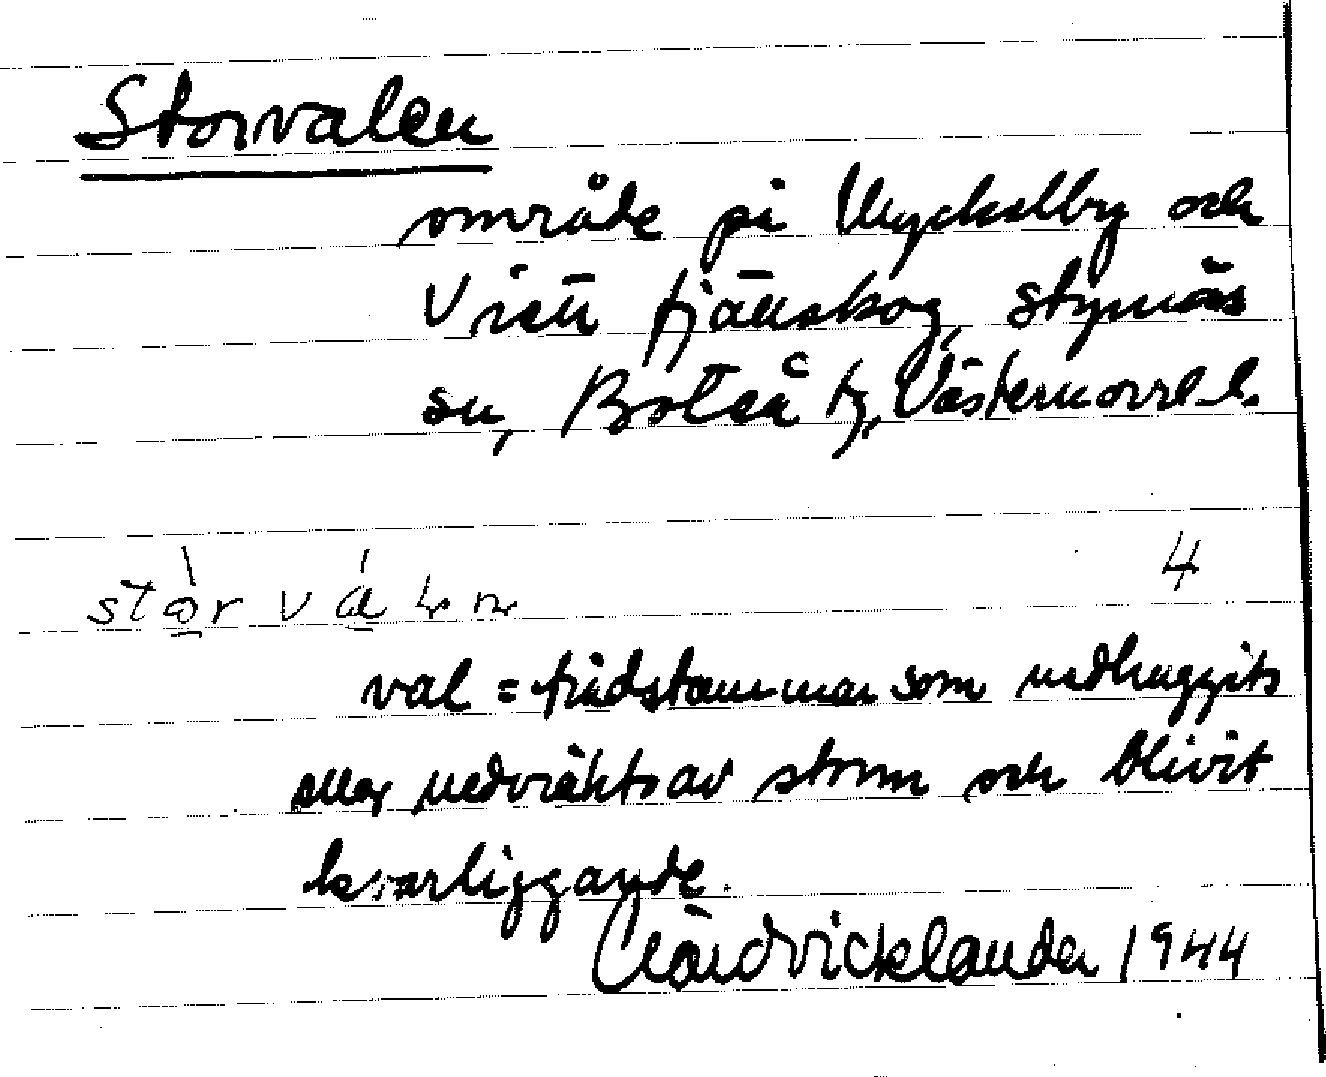 Storvalen
område på Nyckelby och
Vister fjällskog, Styrnäs
sn, Boteå tg, Västernorrl. l.
stòrválen 4
val = trädstammar som nedhuggits
eller nedvräkts av storm och blivit
kvarliggande.
Wicklander 1944